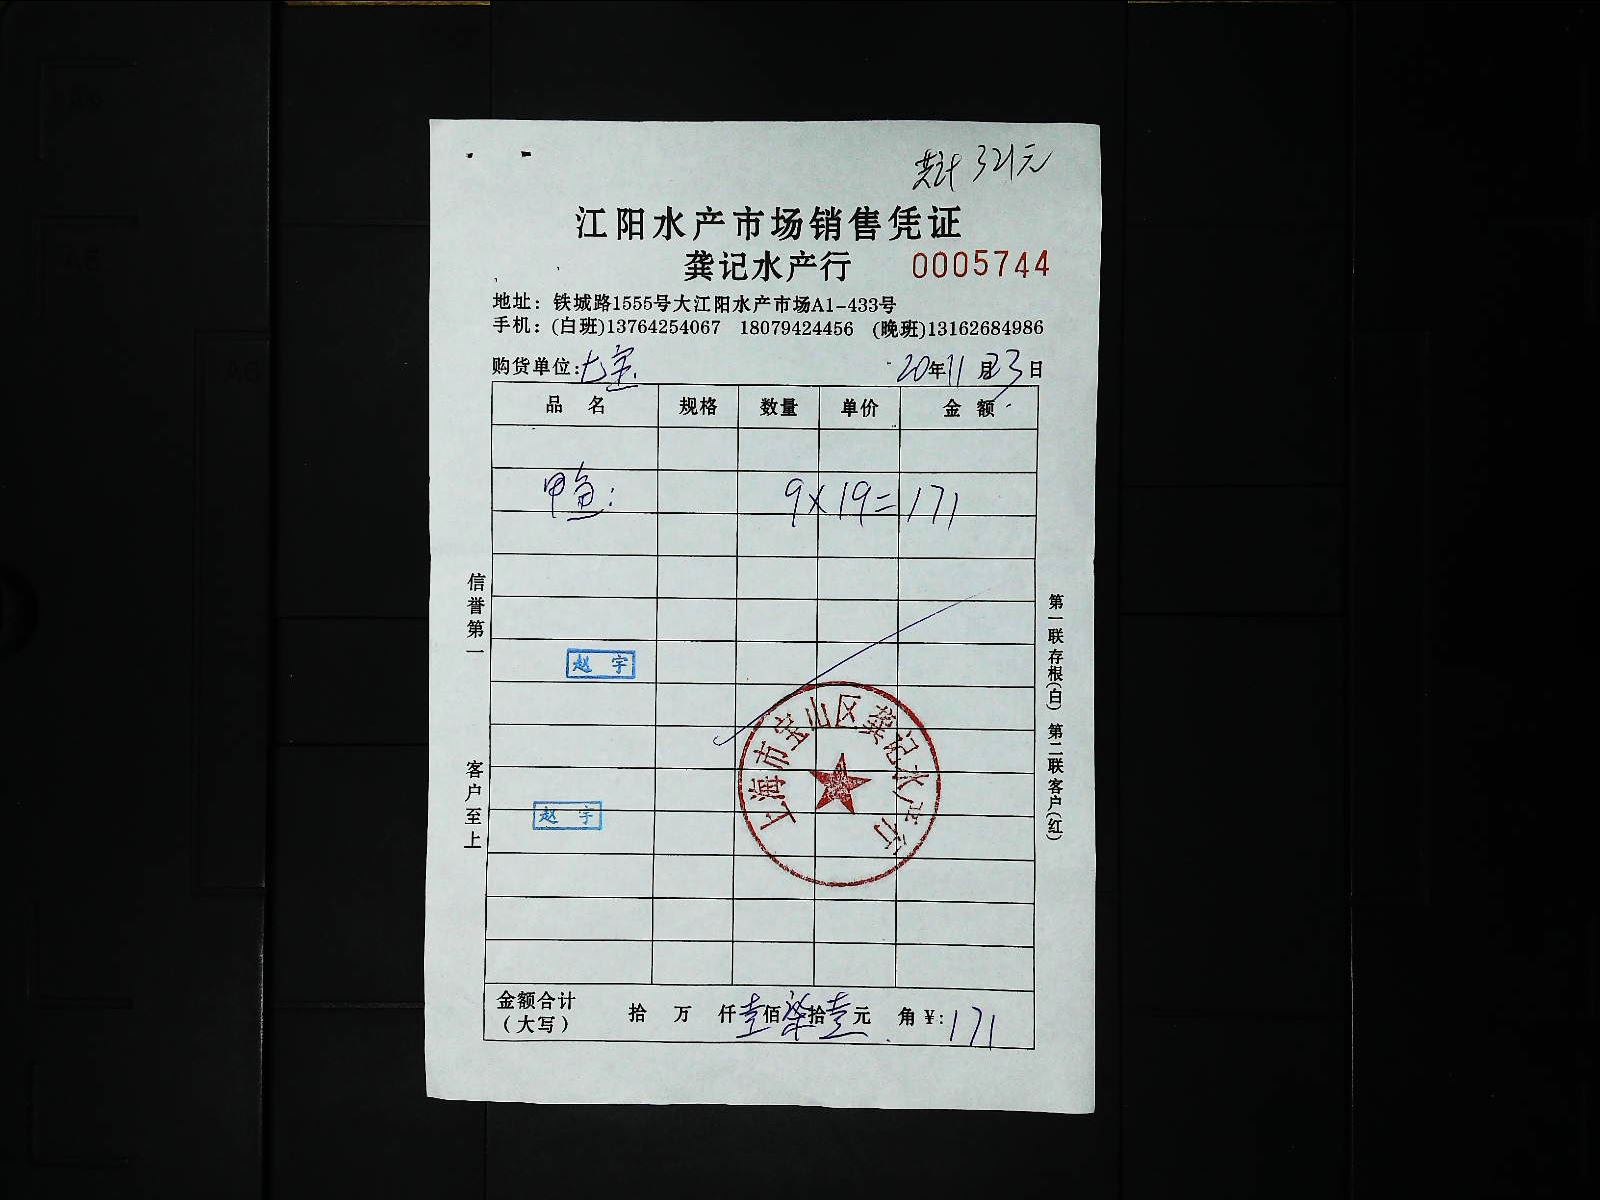 共计 321元
江阳水产市场销售凭证
龚记水产行 0005744
地址：铁城路1555号大江阳水产市场A1-433号
手机：(白班)13764254067 18079424456 (晚班)13162684986
购货单位: 七宝 20年11月23日
品 名 规格 数量 单价 金 额
甲鱼: 9×19=171
信誉第一
客户至上
赵 宇
赵 宇
上海市宝山区龚记水产行
第一联存根(白) 第二联客户(红)
金额合计（大写） 拾 万 仟壹佰柒拾壹元 角 ¥:171